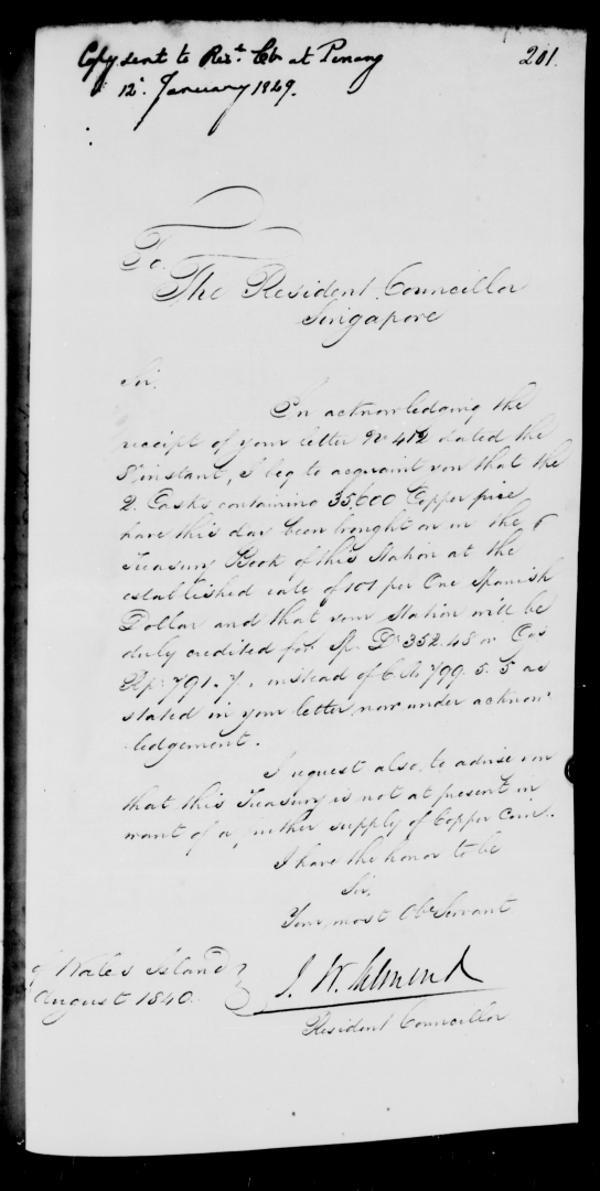 Copy sent to Rest. Cr. at Penang
201.
12. January 1849.
To
The Resident Councillor
Singapore
Sir,
In acknowledging the
receipt of your letter No 412 dated the
instant, I beg to acquaint you that the
2. Casks containing 35,600 Copper pice
have this day been brought on in the
Treasury Book of this Station at the
established rate of 101 per One Spanish
Dollar and that your Station will be
duly credited for Sp. Ds 352.48 or Cos
Rps 791.7., instead of C. Rs 799. 5. 5 as
stated in your letter now under acknow
ledgement.
I request also to advise you
that this Treasury is not at present in
want of a further supply of Copper Coin.
I have the honor to be
Sir,
Your most Obt. Servant
of Wales Island
August 1840.
Resident Councillor